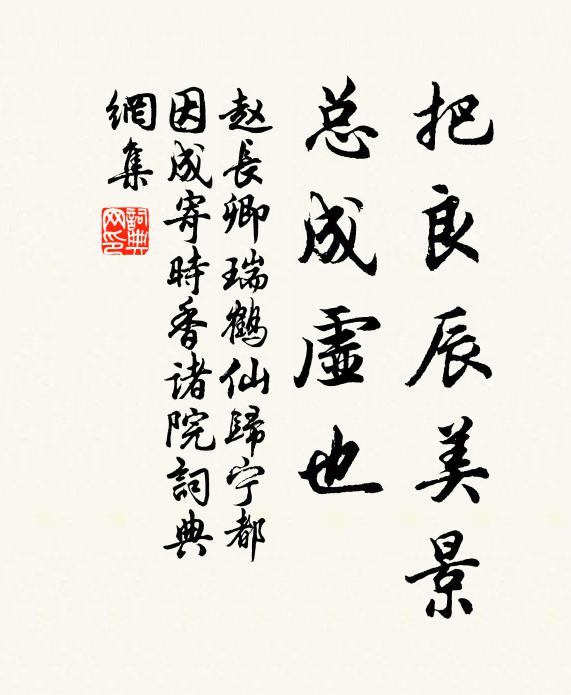 把良辰美景
总成虛也
赵長卿瑞鶴仙歸宁都
因成寄時香诸院詞典
網集
詞典网印